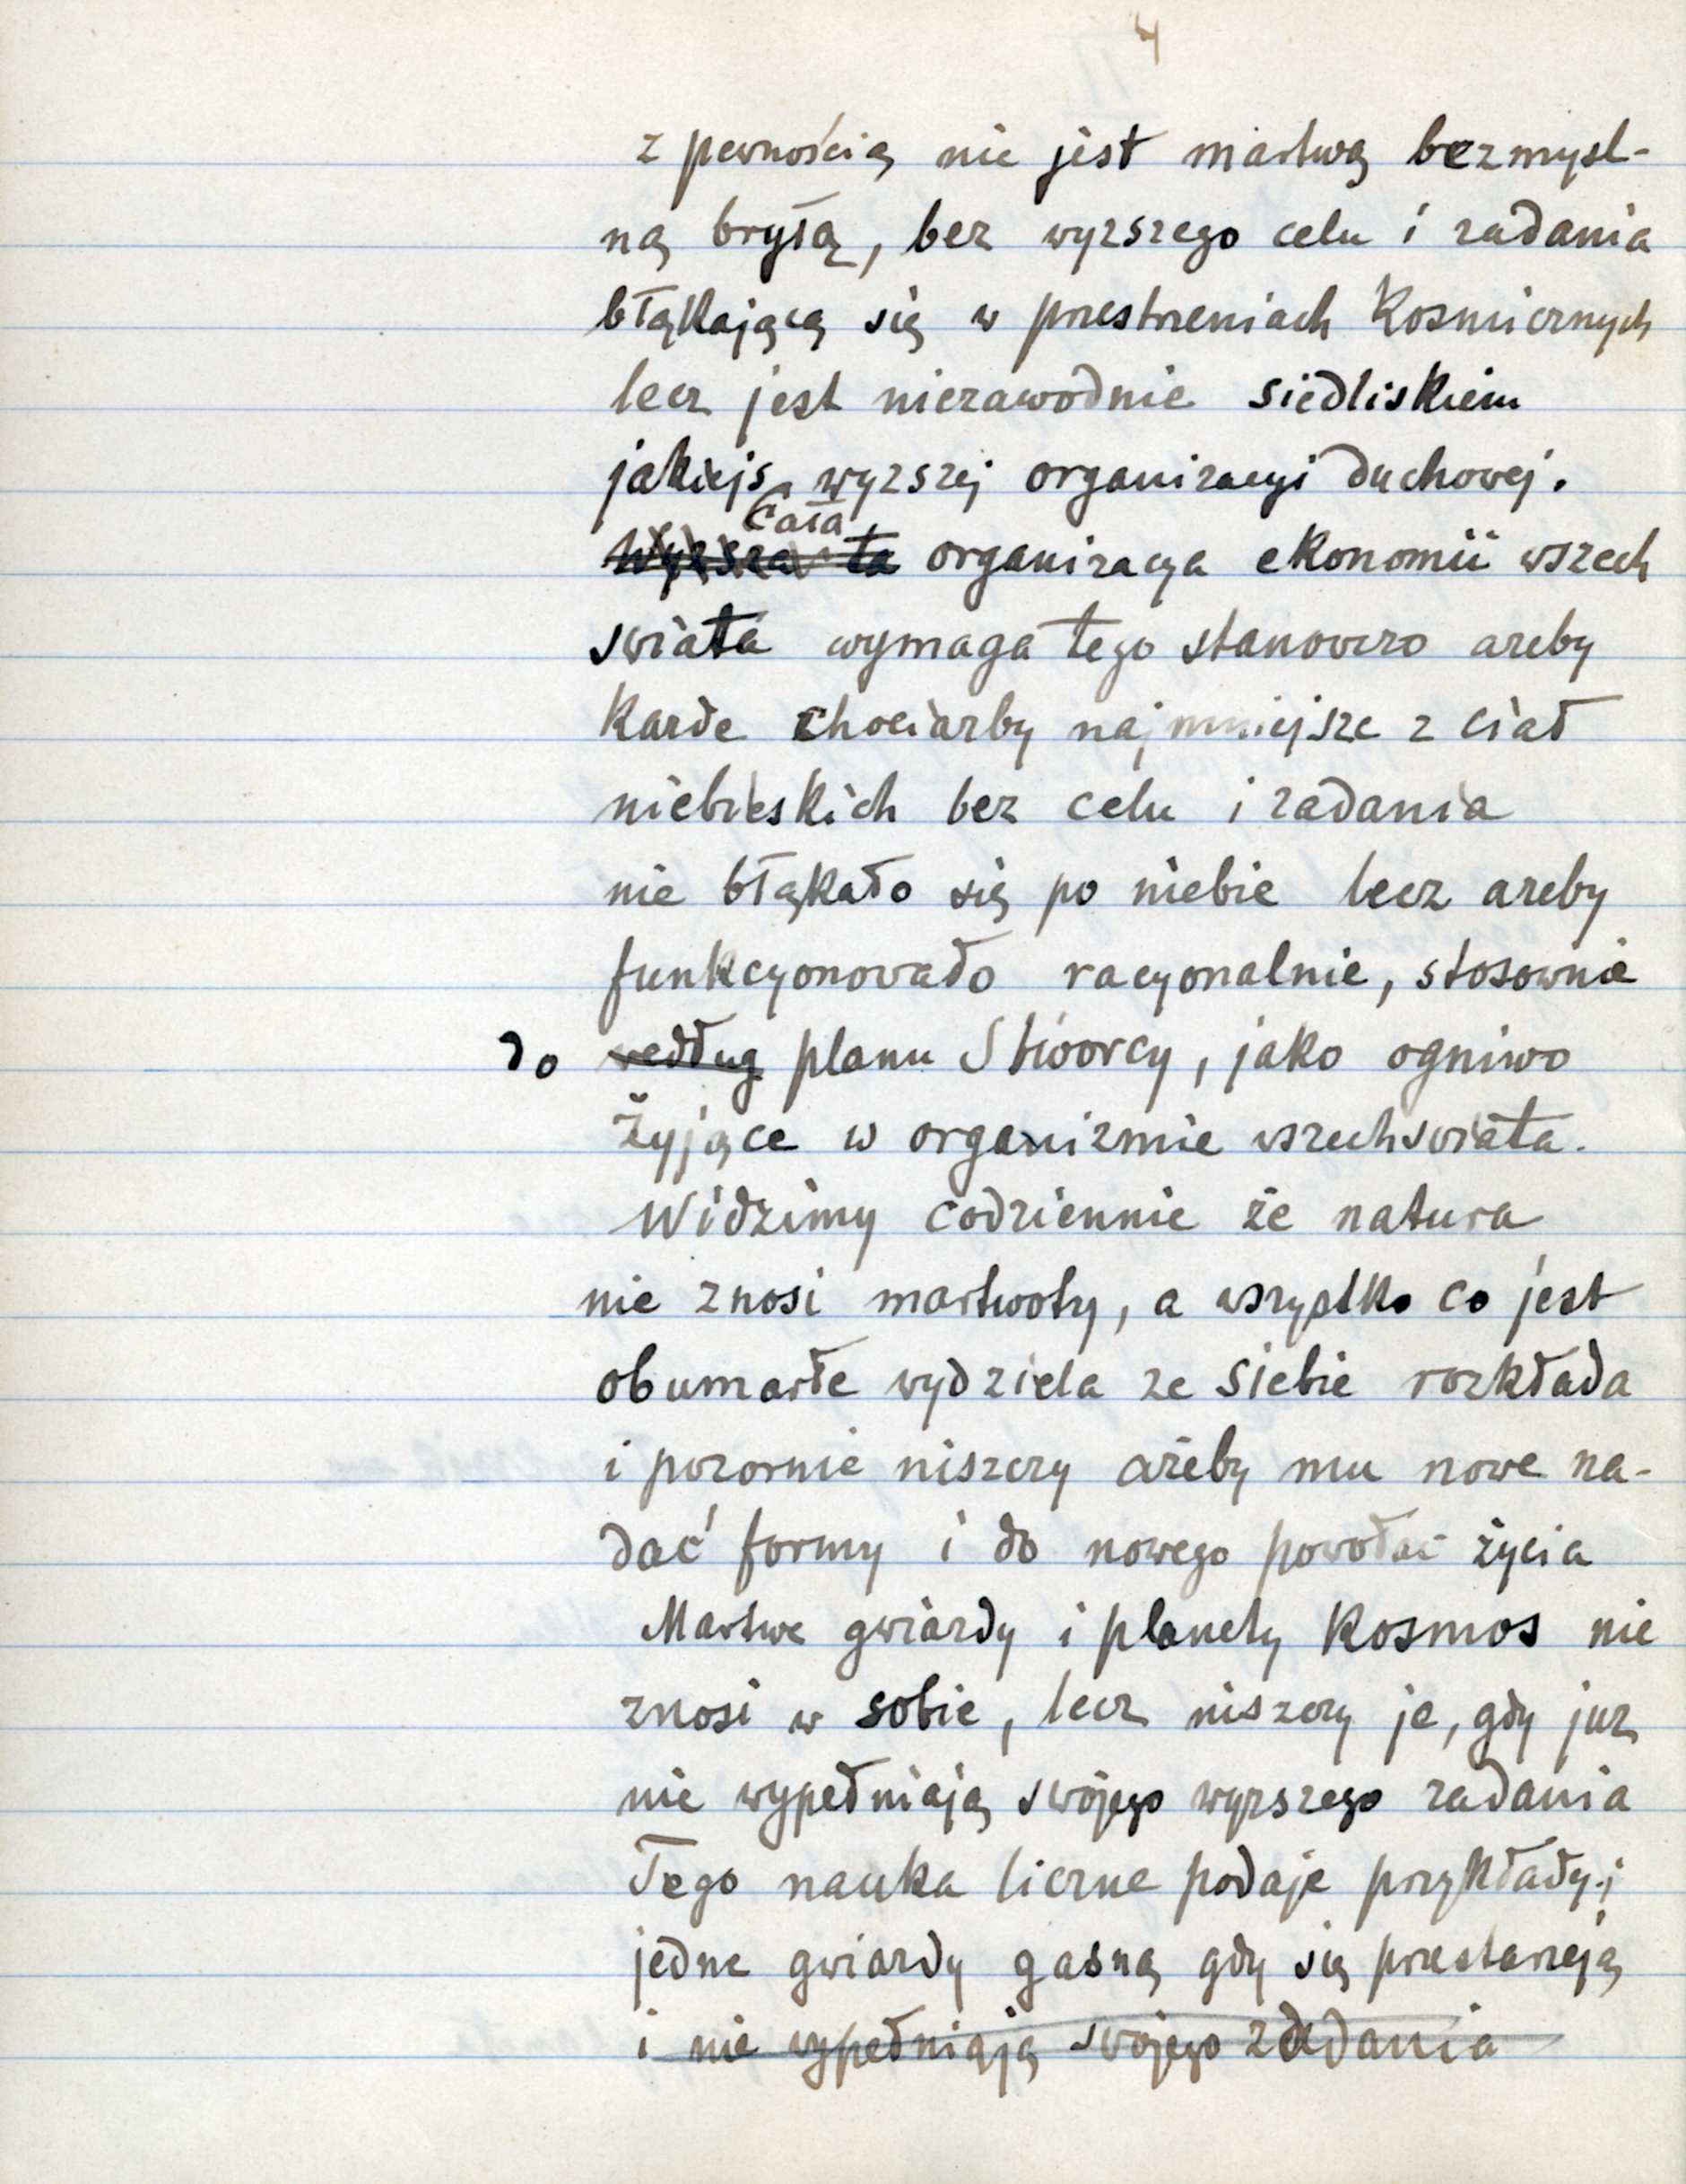 4
z pewnością nie jest martwą bezmysl-
ną bryłą, bez wyzszego celu i zadania
błąkającą się w przestrzeniach Kosmicznych
lecz jest niezawodnie siedliskiem
jakiejs wyzszej organizacyi duchowej.
Cała
Wyzsza ta organizacya ekonomii wszech
swiata wymaga tego stanowczo azeby
Kazde chociazby najmniejsze z ciał
niebieskich bez celu i zadania
nie błąkało się po niebie lecz azeby
funkcyonowało racyonalnie, stosownie
do według planu Stwórcy, jako ogniwo
Żyjące w organizmie wszechswiata.
Widzimy codziennie że natura
nie znosi martwoty, a wszystko co jest
obumarłe wydziela ze siebie rozkłada
i pozornie niszczy ażeby mu nowe na-
dać formy i do nowego powołać życia
Martwe gwiazdy i planety Kosmos nie
znosi w sobie, lecz niszczy je, gdy juz
nie wypełniają swójego wyzszego zadania
Tego nauka liczne podaje przykłady;
jedne gwiazdy gasną gdy się przestarzeją
i nie wypełniają swojego zadania